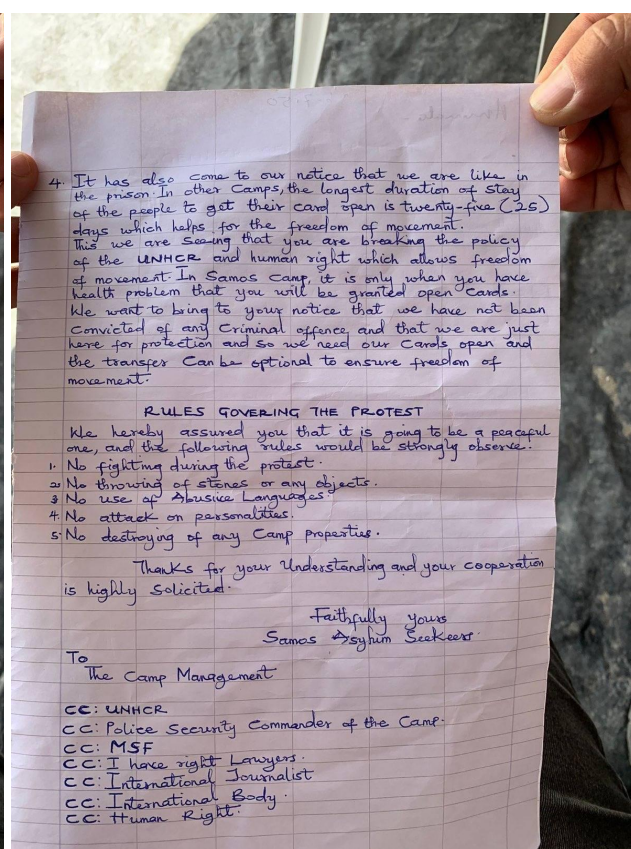 4. It has also come to our notice that we are like in
the prison. In other Camps, the longest duration of stay
of the people to get their card open is twenty-five (25)
days which helps for the freedom of movement.
This we are seeing that you are breaking the policy
of the UNHCR and human right which allows freedom
of movement. In Samos Camp, it is only when you have
health problem that you will be granted open cards.
We want to bring to your notice that we have not been
Convicted of any Criminal offence and that we are just
here for protection and so we need our Cards open and
the transfer Can be optional to ensure freedom of
movement.
RULES GOVERING THE PROTEST
We hereby assured you that it is going to be a peaceful
one, and the following rules would be strongly observe.
1. No fighting during the protest.
2. No throwing of stones or any objects.
3 No use of Abusive Languages.
4. No attack on personalities.
5. No destroying of any Camp properties.
Thanks for your Understanding and your cooperation
is highly Solicited.
Faithfully yours
Samos Asylum Seekers.
To
The Camp Management
CC: UNHCR
CC: Police Security Commander of the Camp.
CC: MSF
CC: I have right Lawyers.
CC: International Journalist
CC: International Body.
CC: Human Right.